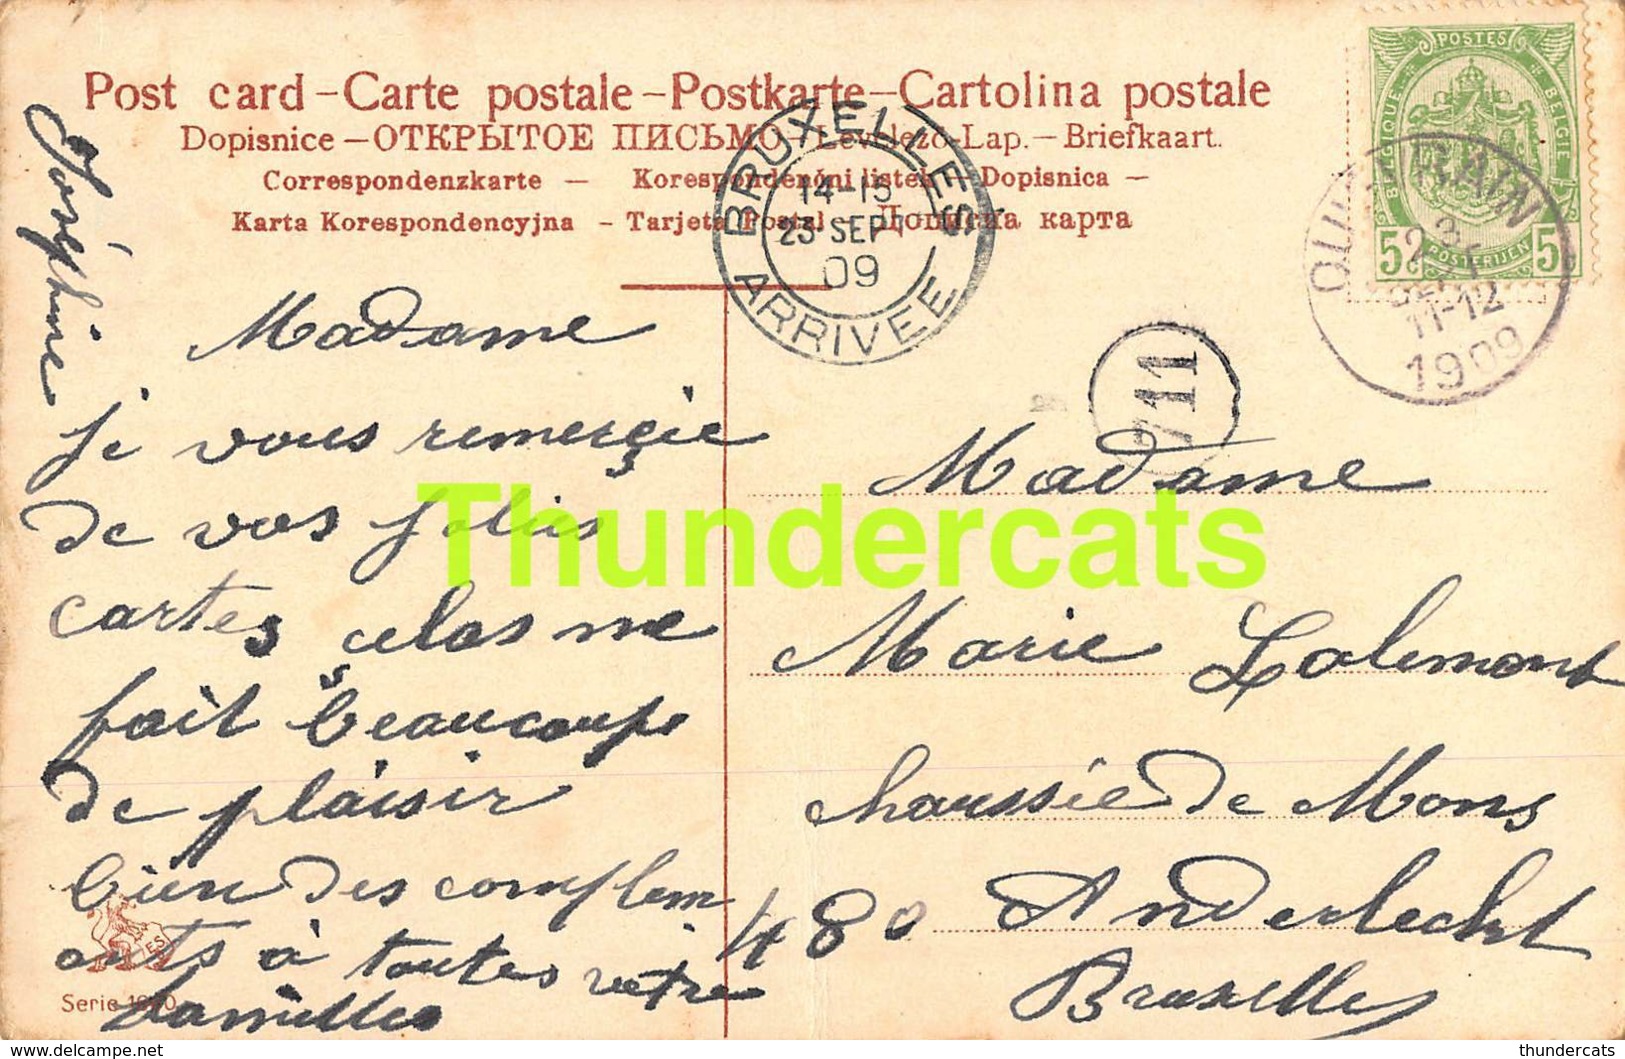 Post card – Carte postale – Postkarte – Cartolina postale
Dopisnice – ОТКРЫТОЕ ПИСЬМО – Levelező-Lap. – Briefkaart.
Correspondenzkarte – Korespondenčni listek – Dopisnica –
Karta Korespondencyjna – Tarjeta Postal – Дописна карта
POSTES
BELGIQUE
BELGIE
5c POSTERIJEN 5c
BRUXELLES
14-15
23 SEPT
09
ARRIVEE
11-12
1909
711
Joséphine
Madame
je vous remerçie
de vos jolies
cartes celas me
fait beaucoups
de plaisir
bien des complem
ents à toutes votre
familles
Madame
Marie Lalemont
chaussée de Mons
480 Anderlecht
Bruxelles
Thundercats
Serie
thundercats